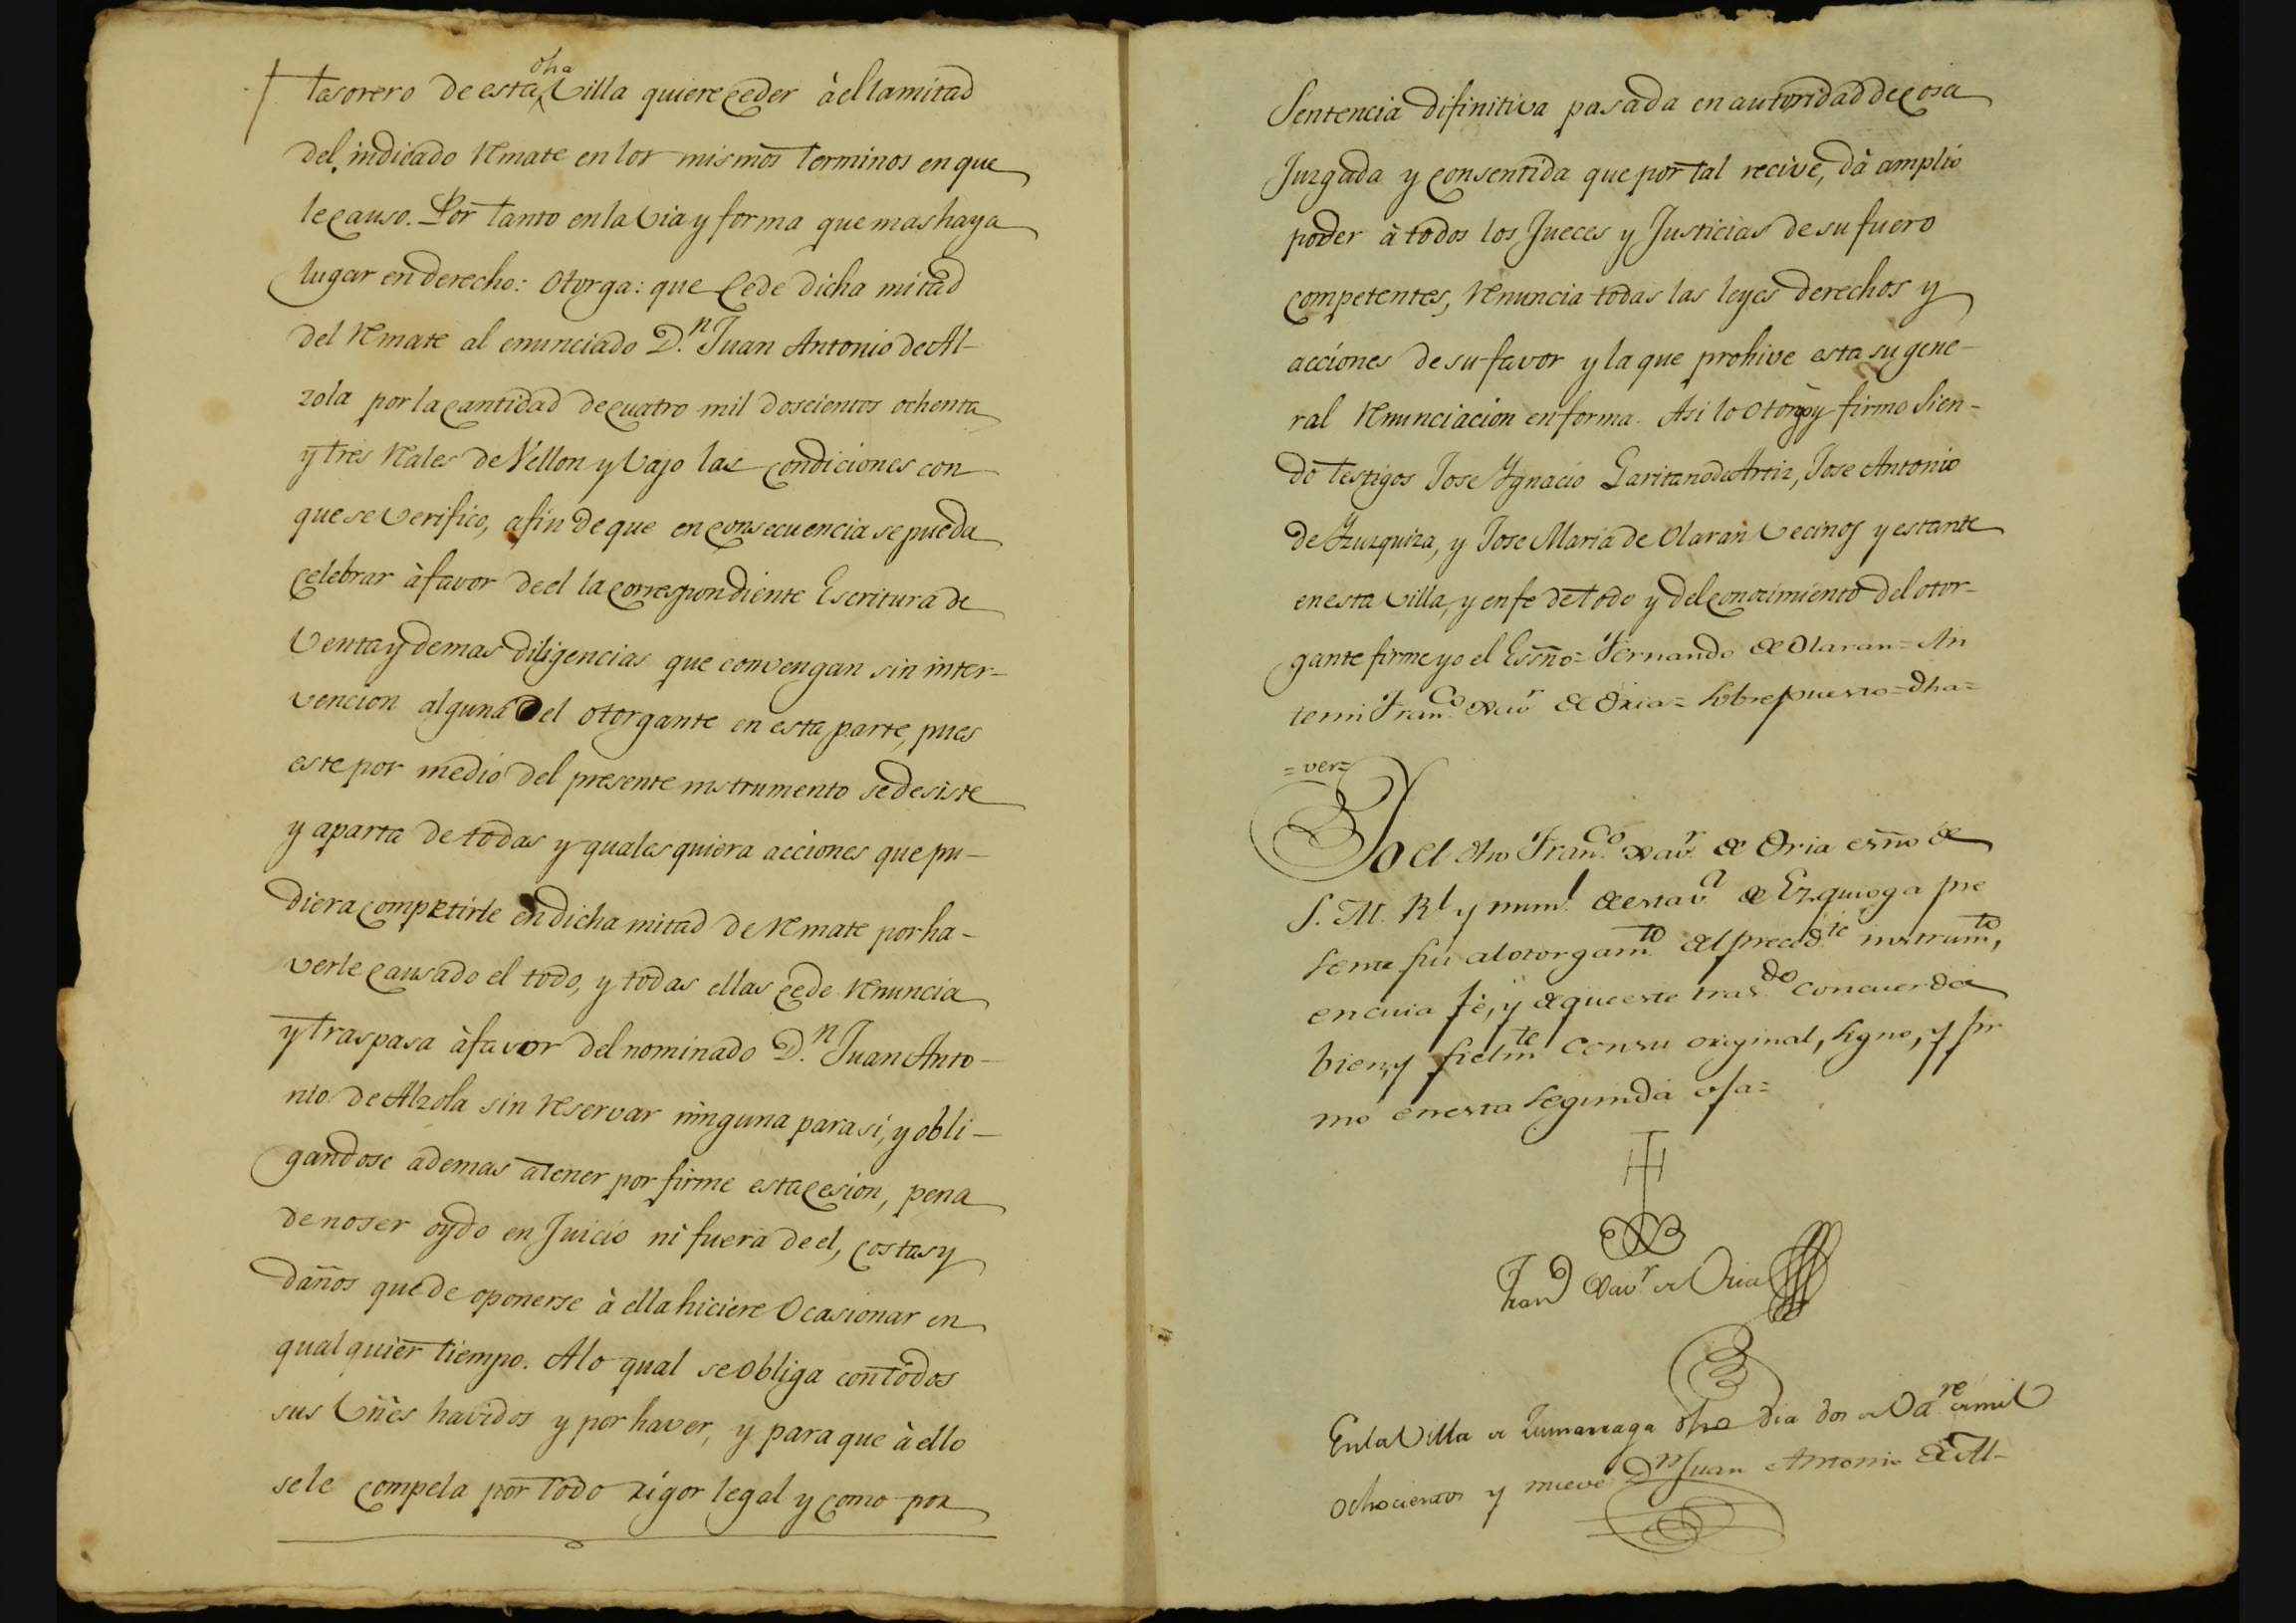 Tasorero de esta dha Villa quiere ceder à el la mitad
del indicado Remate en los mismos terminos en que
le causo. Por tanto en la via y forma que mas haya
lugar en derecho: Otorga: que Cede dicha mitad
del Remate al enunciado D.n Juan Antonio de Al-
zola por la cantidad de cuatro mil doscientos ochenta
y tres Reales de Vellon y vajo las condiciones con
que se verifico, a fin de que en consecuencia se pueda
celebrar à favor de el la correspondiente Escritura de
Venta y demas diligencias que convengan sin inter-
vencion alguna del otorgante en esta parte, pues
este por medio del presente instrumento se desiste
y aparta de todas y quales quiera acciones que pu-
diera competirle en dicha mitad de Remate por ha-
verle causado el todo, y todas ellas cede Renuncia
y traspasa à favor del nominado D.n Juan Anto-
nio de Alzola sin Reservar ninguna para si, y obli-
gandose ademas a tener por firme esta cesion, pena
de no ser oydo en Juicio ni fuera de el, costas y
daños que de oponerse à ella hiciere Ocasionar en
qualquier tiempo. A lo qual se obliga con todos
sus vñes havidos y por haver, y para que à ello
se le compela por todo rigor legal y como por
Sentencia difinitiva pasada en autoridad de cosa
Juzgada y consentida que por tal recive, dà amplio
poder à todos los Jueces y Justicias de su fuero
competentes, Renuncia todas las leyes derechos y
acciones de su favor y la que prohive esta su gene-
ral Renunciacion en forma. Asi lo otorgò y firmo Sien-
do testigos Jose Ygnacio Garitano de Artiz, Jose Antonio
de Yzuzquiza, y Jose Maria de Olaran Vecinos y estante
en esta villa, y en fe de todo y del conocimiento del otor-
gante firme yo el Essño = Fernando de Olaran = An
temi Fran.co Xav.r de Oria = Sobrepuesto = dha =
= ver =
Yo el dho Fran.co Xav.r de Oria esño de
S. M. Rl y numl. de esta v.a de Ezquioga pre
sente fui al otorgam.to del preced.te instrum.to,
en cuia fé, y de que este tras.do concuerda
bien, y fielm.te con su original, signo, y fir
mo en esta segunda ofa =
Fran.co Xav.r de Oria
En la Villa de Zumarraga dho dia dos de Oct.re de mil
ochocientos y nueve D.n Juan Antonio de Al-